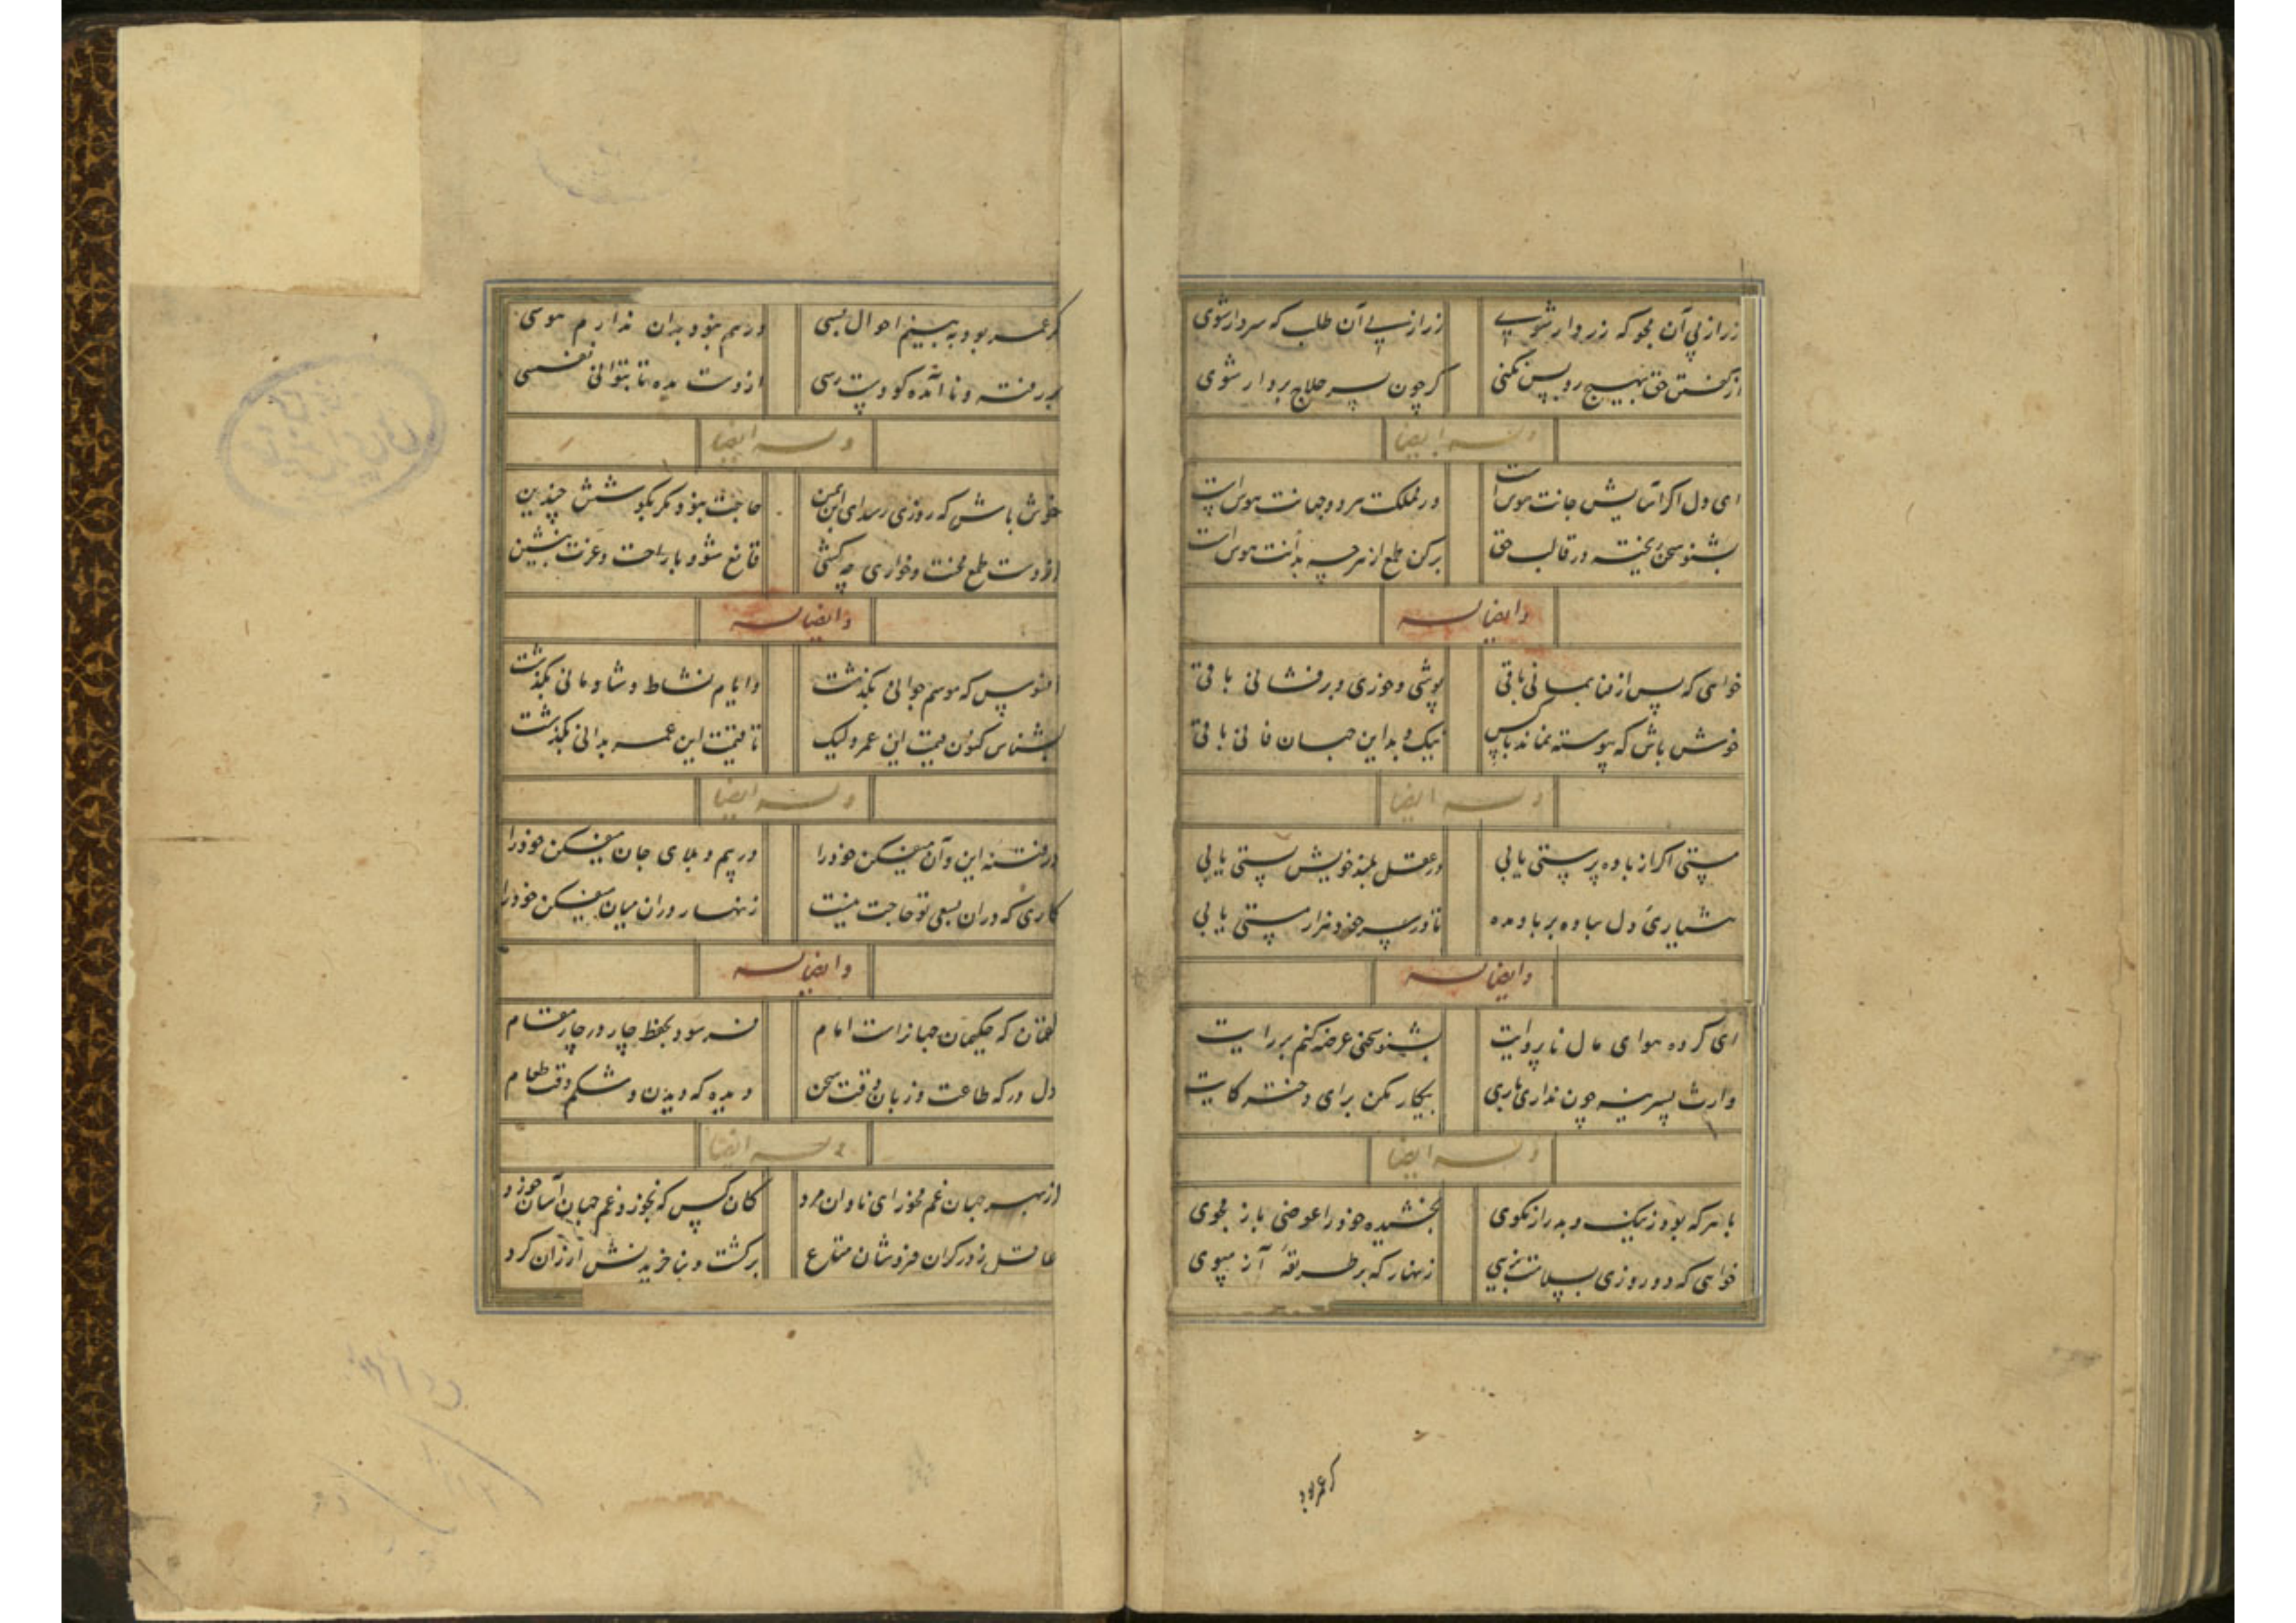 زر از پی آن مجو که زردار شوی    زر از پی آن طلب که سردار شوی
از گفتن حق بهیچ رو پس نکنی    گر چون پسر حلاج بردار شوی
وله ایضا
ای دل اگر آسایش جانت هوس است    در مملکت هر دو جهانت هوس است
بشنو سخن ریخته در قالب حق    برکن طمع از هرچه بدانت هوس است
وایضا له
خواهی که پس از فنا بمانی باقی    پوشی و خوری و برفشانی باقی
خوش باش که پیوسته نماند با کس    نیک و بد این جهان فانی باقی
وله ایضا
مستی اگر از باده پرستی یابی    در عقل بلند خویش پستی یابی
هشیاری دل بباده بر باد مده    تا در سر خود هزار مستی یابی
وایضا له
ای کرده هوای مال ناپروایت    بشنو سخنی عرضه کنم بر رایت
وارث پسرینه چون نداری باری    بیکار مکن برای دختر کایت
وله ایضا
با هر که بود ز نیک و بد راز مگوی    بخشیده خود را عوضی باز مجوی
خواهی که دو روزی بسلامت بزیی    زنهار که بر طریقه آز مپوی
گر عمر بود
گر عمر بود به بینم احوال بسی    ورهم نبود بدان ندارم هوسی
بر رفته و ناآمده کو دست رسی    از دست مده تا بتوانی نفسی
وله ایضا
خوش باش که روزی رسد ای ابن یمین    حاجت نبود مگر بکوشش چندین
از دست طمع محنت و خواری چه کشی    قانع شو و با راحت و عزت بنشین
وایضا له
افسوس که موسم جوانی بگذشت    وایام نشاط و شادمانی بگذشت
بشناس کنون قیمت این عمر ولیک    تا قیمت این عمر بدانی بگذشت
وله ایضا
در فتنه این و آن میفکن خود را    در بیم و بلای جان میفکن خود را
کاری که در ان بسعی تو حاجت نیست    زنهار در ان میان میفکن خود را
وایضا له
لقمان که حکیمان جهانراست امام    فرمود بحفظ چار در چار مقام
دل در که طاعت و زبان وقت سخن    دیده که دیدن و شکم وقت طعام
وله ایضا
از بهر جهان غم مخور ای نادان مرد    کان کس که نخورد غم جهان آسان خورد
عاقل ز در گران فروشان متاع    برگشت و بنا خریدنش ارزان کرد